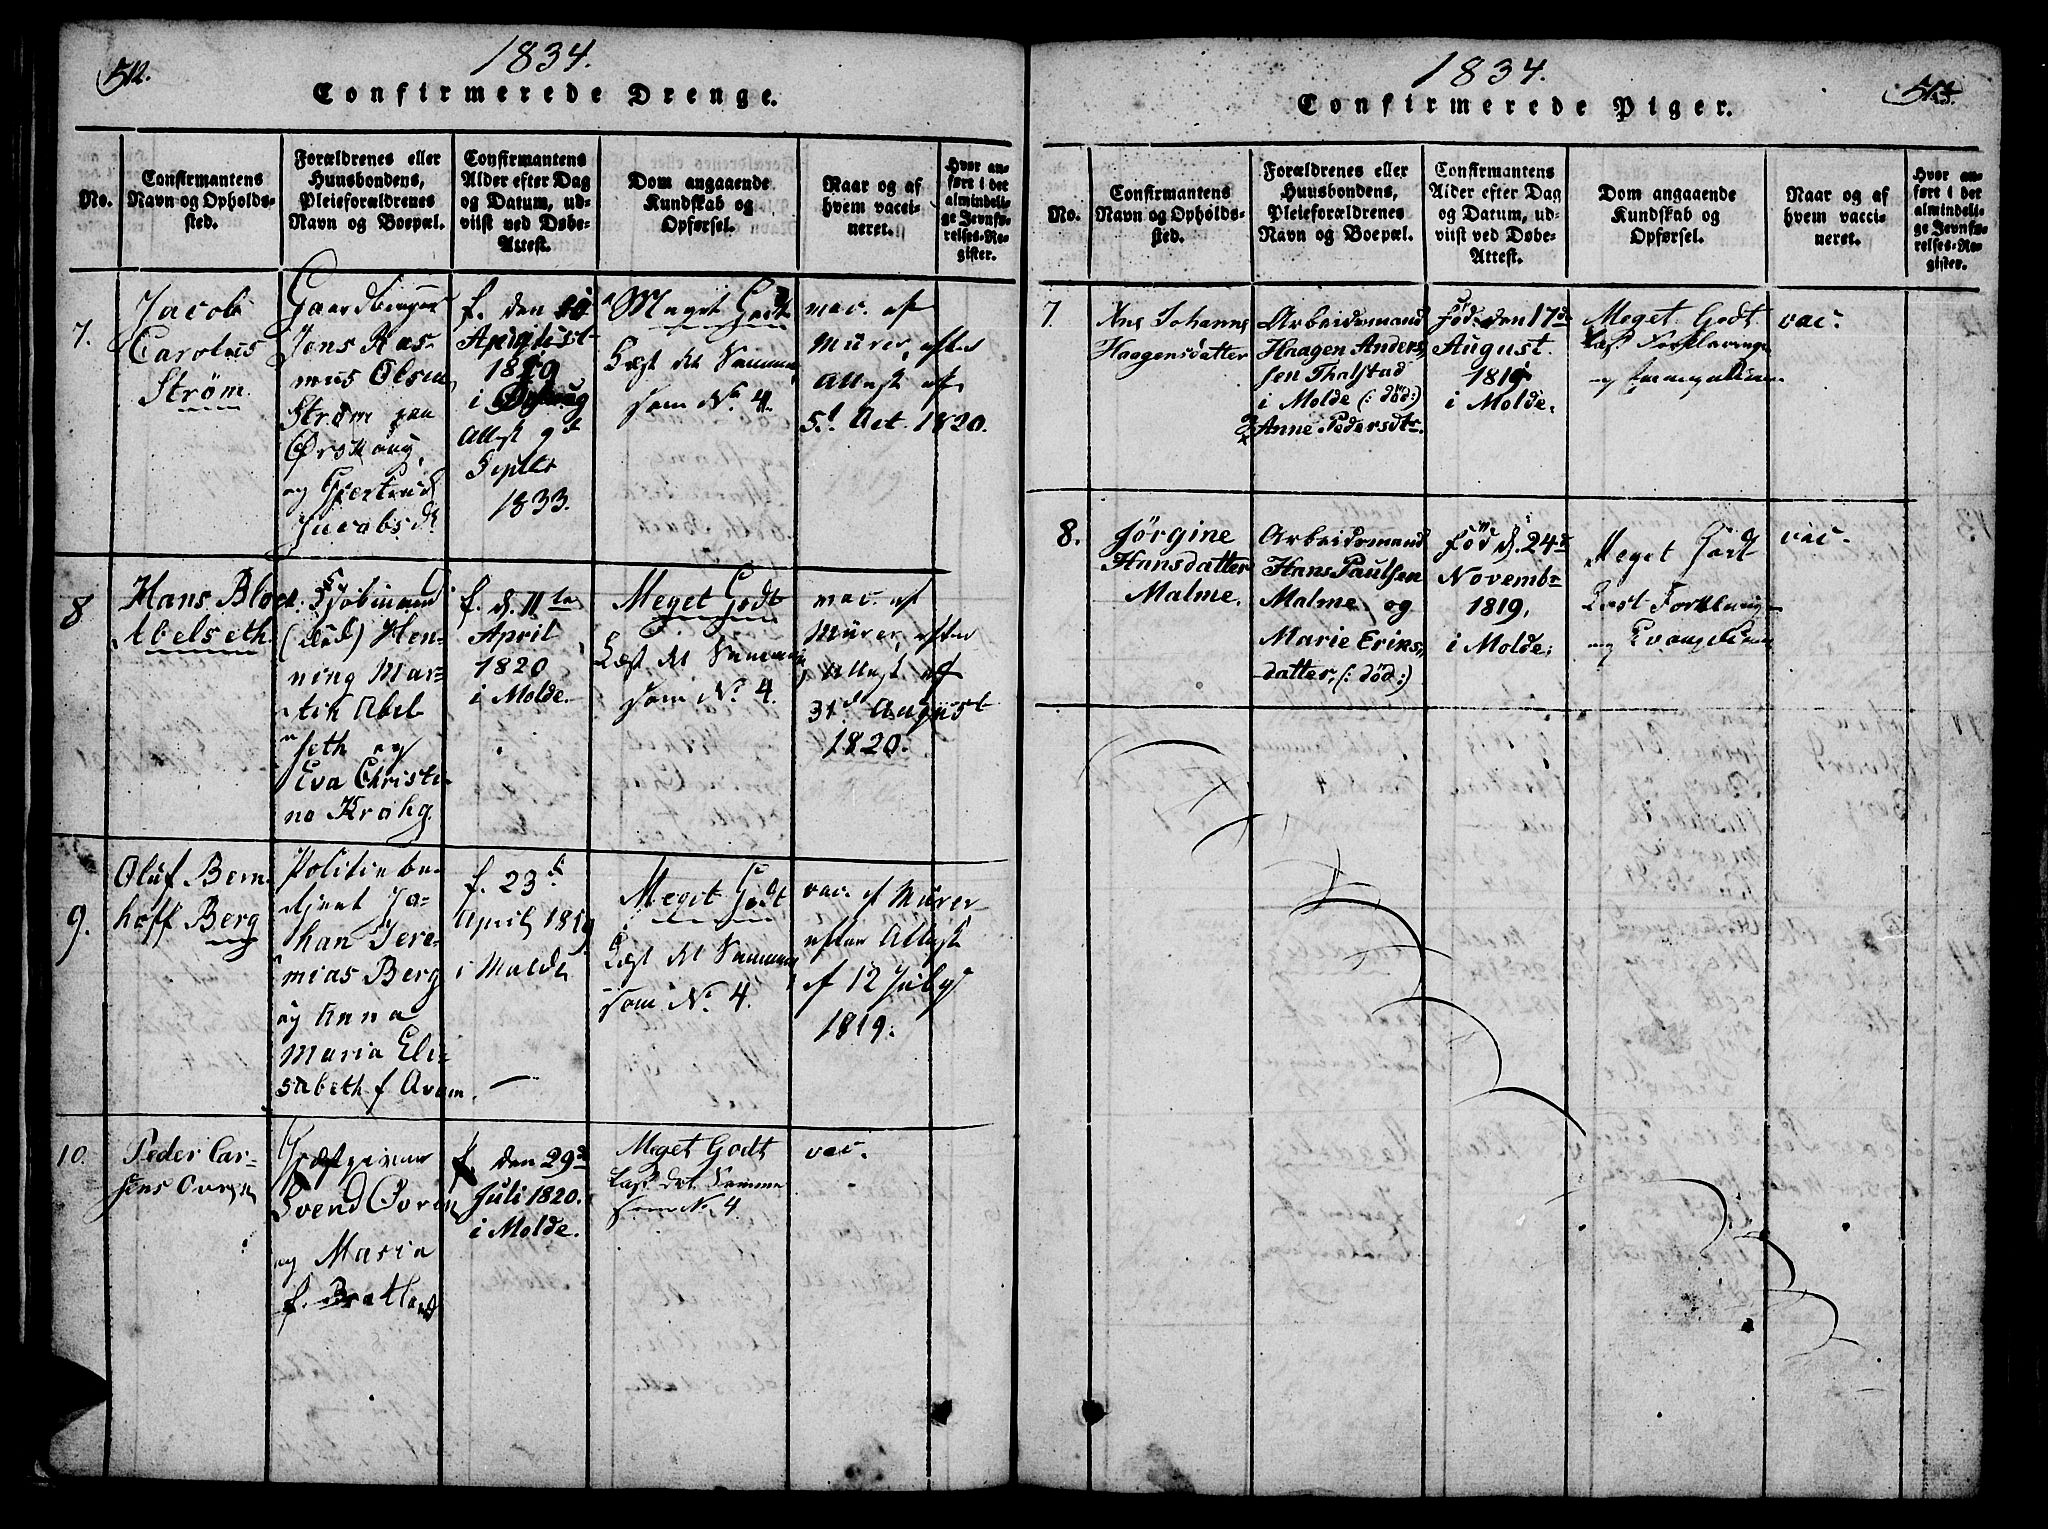 512.
1834.
Confirmerede Drenge.
No.
Confirmantens
Navn og Opholds-
sted.
Forældrenes eller
Huusbondens,
Pleieforældrenes
Navn og Boepæl.
Confirmantens
Alder efter Dag
og Datum, ud-
viist ved Døbe-
Attest.
Dom angaaende
Kundskab og
Opførsel.
Naar og af
hvem vacci-
neret.
Hvor an-
ført i det
almindeli-
ge Jevnfø-
relses-Re-
gister.
7.
Jacob
Carolus
Strøm
Gaardbruger
Jens Ras-
mus Olsen
Strøm paa
Ørskoug,
og Gjertrud
Jacobsd
f. den
1819
i
Attest 9d
Septbr
1833.
Meget Godt
Læst det Samme
som No. 4.
vac. af
Mürer, efter
Attest af
5d. Oct. 1820.
8
Hans Bloch
Abelseth
(død) Hen-
ning Mar-
tin Abel
seth og
Eva Christi-
na Krohg
f. d. 11te
April
1820
i Molde
Meget Godt
Læst det Samme
som No. 4
vac. af
Mürer, efter
Attest af
31d. August
1820.
9.
Oluf Bern-
hoff Berg
Politiebe-
tjent Jo-
han Jere-
mias Berg
og Anna
Maria Eli-
sabeth f.
f. 23d
April 1819
i Molde
Meget Godt
Læst det Samme
som No. 4.
vac. af Mürer
efter Attest
af 12 July
1819.
10.
Peder Lar-
sens
Svend
og Maria
f.
f. den 29de
Juli 1820.
i Molde.
Meget Godt
Læst det Samme
som No. 4
vac.
1834.
Confirmerede Piger.
No.
Confirmantens
Navn og Opholds-
sted.
Forældrenes eller
Huusbondens,
Pleieforældrenes
Navn og Boepæl.
Confirmantens
Alder efter Dag
og Datum, ud-
viist ved Døbe-
Attest.
Dom angaaende
Kundskab og
Opførsel.
Naar og af
hvem vacci-
neret.
Hvor an-
ført i det
almindeli-
ge Jevnfø-
relses-Re-
gister.
7.
Ane Johanne
Haagensdatter
Arbeidsmand
Haagen Anders
sen Thalstad
i Molde (: død:)
Anne Pedersdtr.
Fød. den 17de
August.
1819
i Molde.
Meget Godt
Læst Forklaringe
og Evangelierne
vac.
8.
Jørgine
Hansdatter
Malme.
Arbeidsmand
Hans Paulsen
Malme, og
Marie Eriks,
datter, (: død:)
Fød d. 24de
Novembr
1819,
i Molde.
Meget Godt
Læst Forklaring
og Evangelierne
vac.